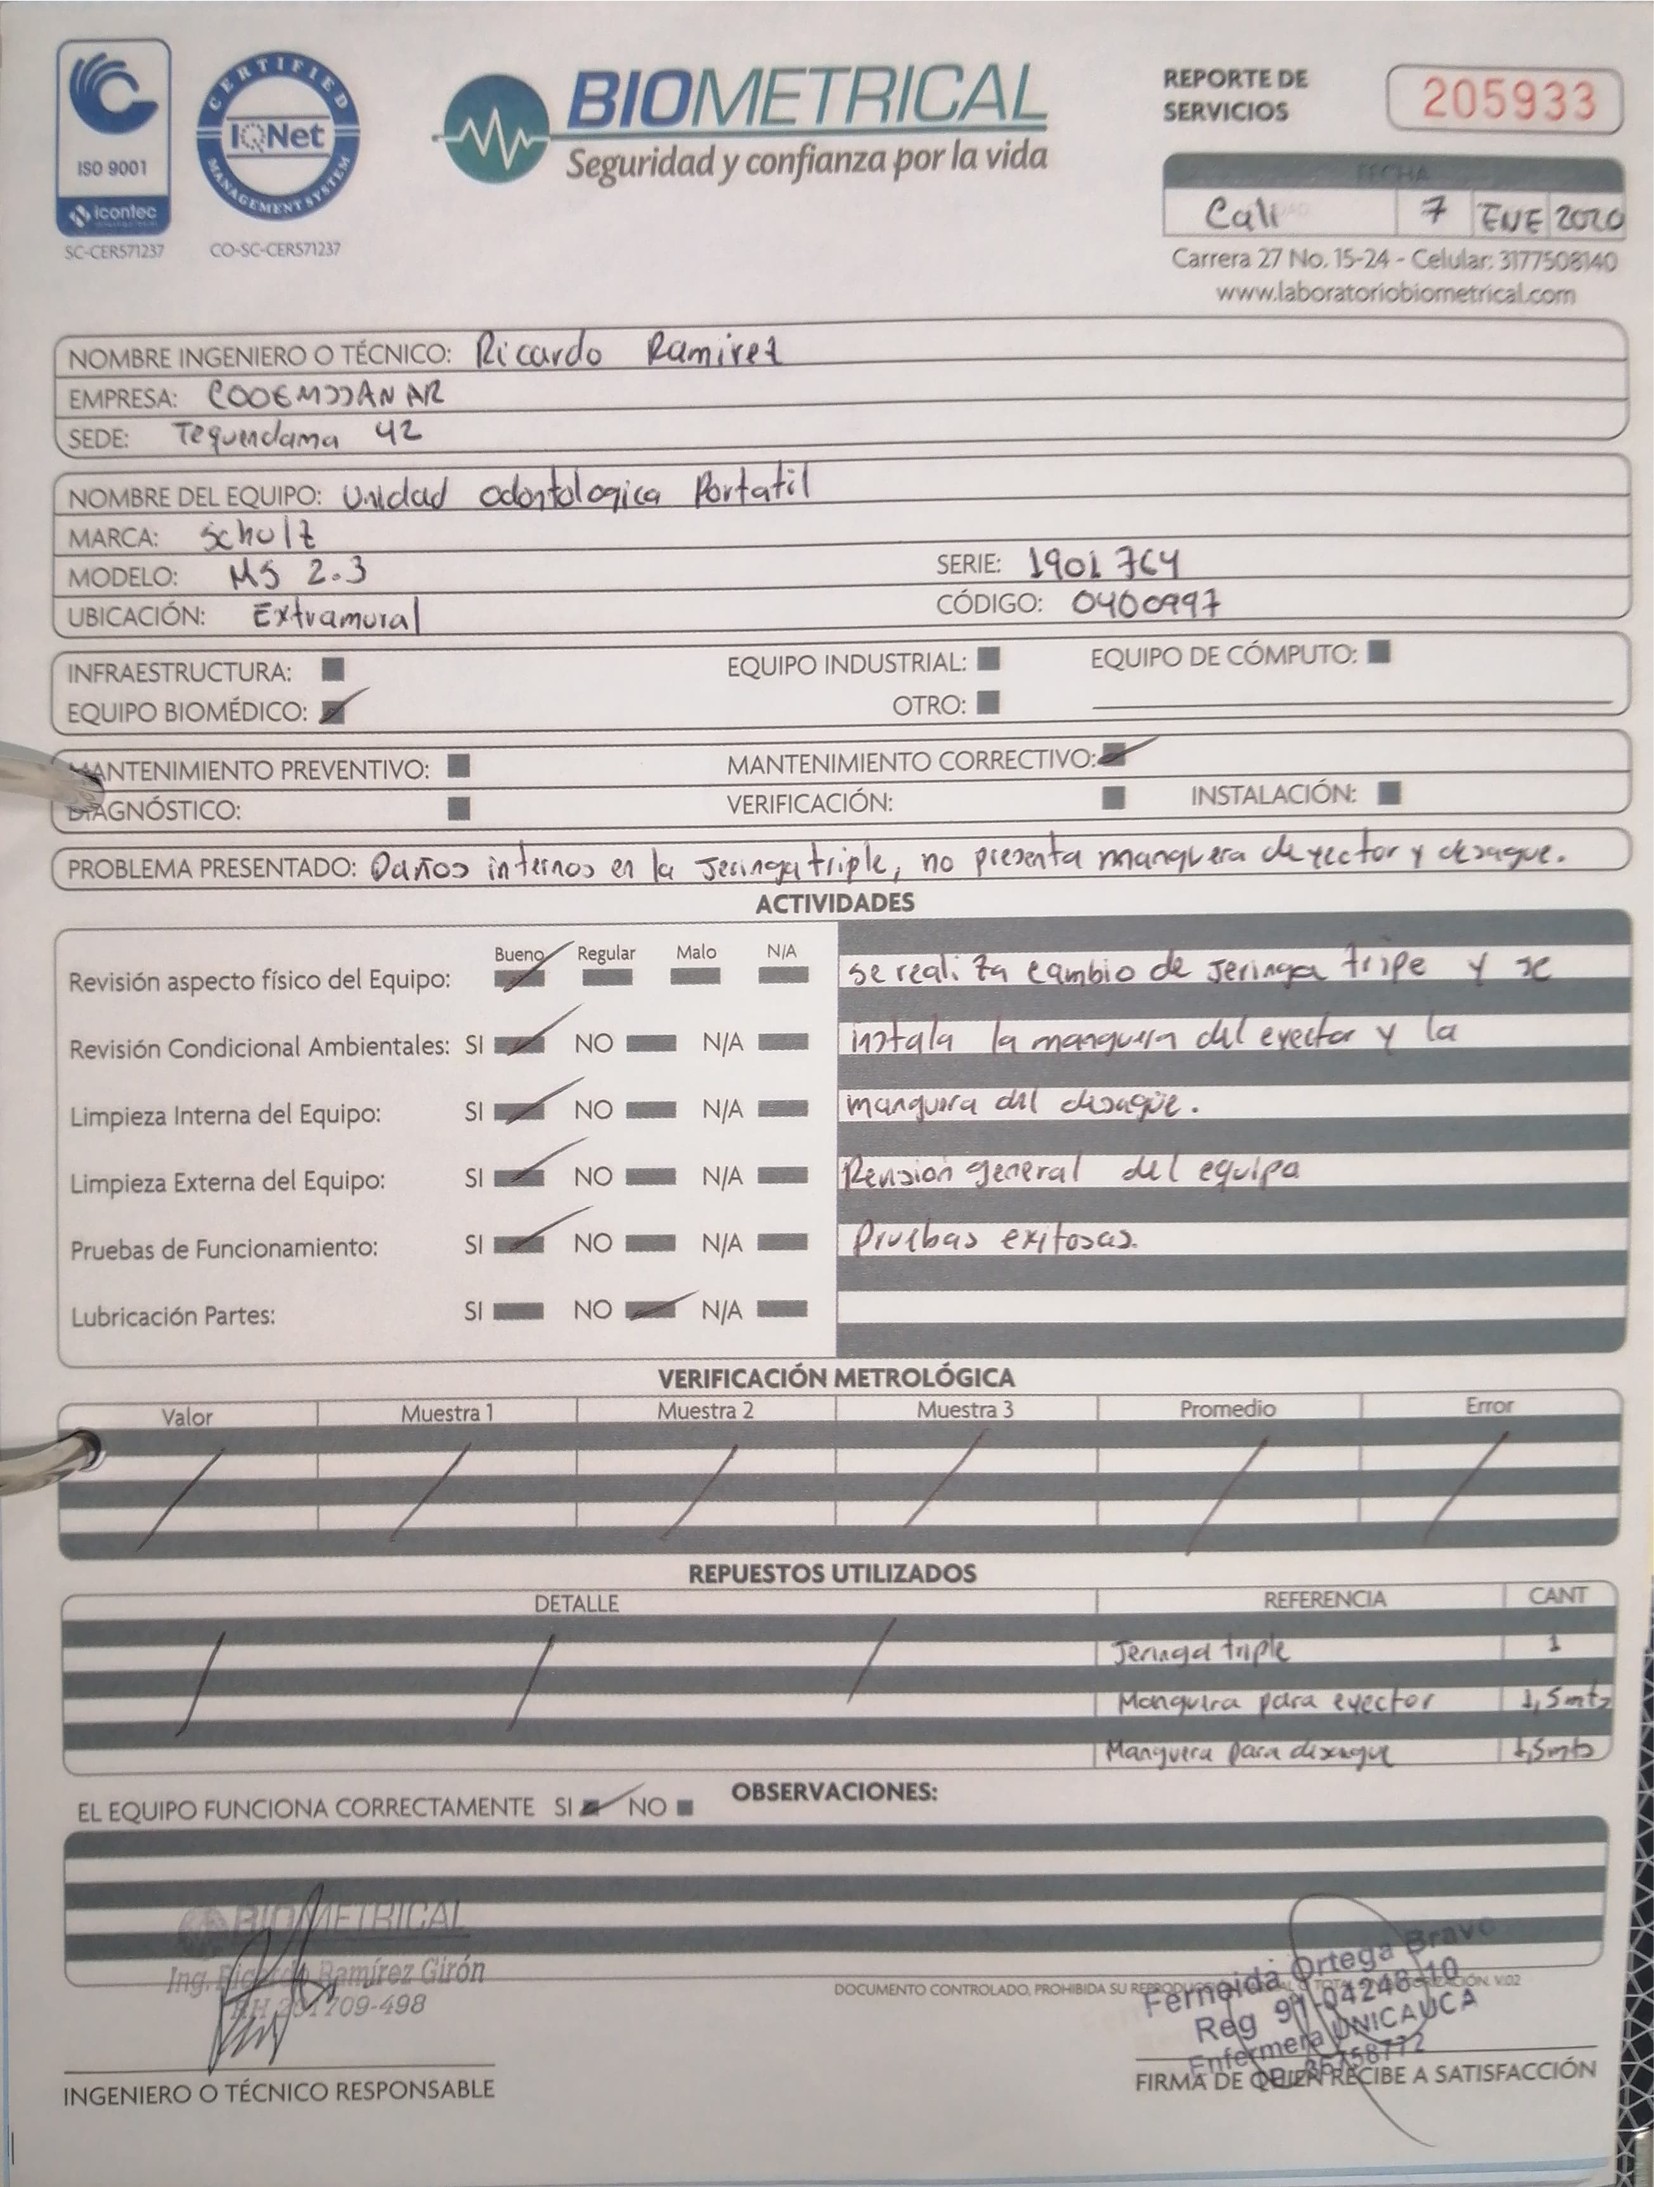 ISO 9001
icontec
SC-CER571237
CERTIFIED
IQNet
MANAGEMENT SYSTEM
CO-SC-CER571237
BIOMETRICAL
Seguridad y confianza por la vida
REPORTE DE
SERVICIOS
205933
FECHA
Cali 7 ENE 2020
Carrera 27 No. 15-24 - Celular: 3177508140
www.laboratoriobiometrical.com
NOMBRE INGENIERO O TÉCNICO: Ricardo Ramirez
EMPRESA: COOEMSSANAR
SEDE: Tequendama 42
NOMBRE DEL EQUIPO: Unidad odontologica Portatil
MARCA: Schulz
MODELO: MS 2.3 SERIE: 1901764
UBICACIÓN: Extramural CÓDIGO: 0400997
INFRAESTRUCTURA: EQUIPO INDUSTRIAL: EQUIPO DE CÓMPUTO:
EQUIPO BIOMÉDICO: OTRO:
MANTENIMIENTO PREVENTIVO: MANTENIMIENTO CORRECTIVO:
DIAGNÓSTICO: VERIFICACIÓN: INSTALACIÓN:
PROBLEMA PRESENTADO: Daños internos en la Jeringa triple, no presenta manguera de yector y desague.
ACTIVIDADES
Bueno Regular Malo N/A
Revisión aspecto físico del Equipo: se realiza cambio de Jeringa tripe y se
Revisión Condicional Ambientales: SI NO N/A instala la manguera del eyector y la
Limpieza Interna del Equipo: SI NO N/A manguera del desague.
Limpieza Externa del Equipo: SI NO N/A Revision general del equipo
Pruebas de Funcionamiento: SI NO N/A Pruebas exitosas.
Lubricación Partes: SI NO N/A
VERIFICACIÓN METROLÓGICA
Valor Muestra 1 Muestra 2 Muestra 3 Promedio Error
REPUESTOS UTILIZADOS
DETALLE REFERENCIA CANT
Jeringa triple 1
Manguera para eyector 1,5mts
Manguera para desague 1,5mts
EL EQUIPO FUNCIONA CORRECTAMENTE SI NO OBSERVACIONES:
BIOMETRICAL
Ing. Ricardo Ramírez Girón
709-498
DOCUMENTO CONTROLADO, PROHIBIDA SU V.02
Ferneida Ortega Bravo
Reg 91-04248-10
Enfermera UNICAUCA
INGENIERO O TÉCNICO RESPONSABLE
FIRMA DE QUIEN RECIBE A SATISFACCIÓN